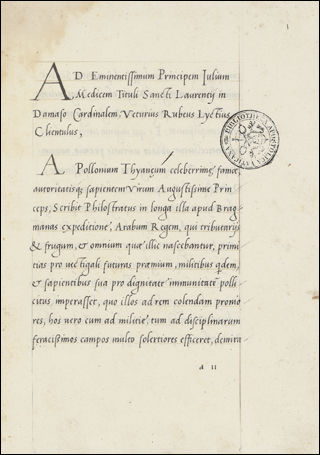 AD Eminentissimum Principem Julium
Medicem Tituli Sancti Laurentij in
Damaso Cardinalem, Veturius Rubeus Lyctius
Clientulus,
APollonium Thyanęum celeberrimę famę,
autoritatisq; sapientem Virum Augustissime Prin
ceps, Scribit Philostratus in longa illa apud Brag
manas expeditione, Arabum Regem, qui tributarijs
& frugum, & omnium quę illic nascebantur, primi
tias pro uectigali futuras pręmium, militibus qdem,
& sapientibus sua pro dignitate immunitatē polli
citus, imperasset, quo illos ad rem colendam promo
res, hos uero cum ad militię, tum ad disciplinarum
feracissimos campos multo solertiores efficeret, demta
a II
BIBLIOTHECA APOSTOLICA VATICANA